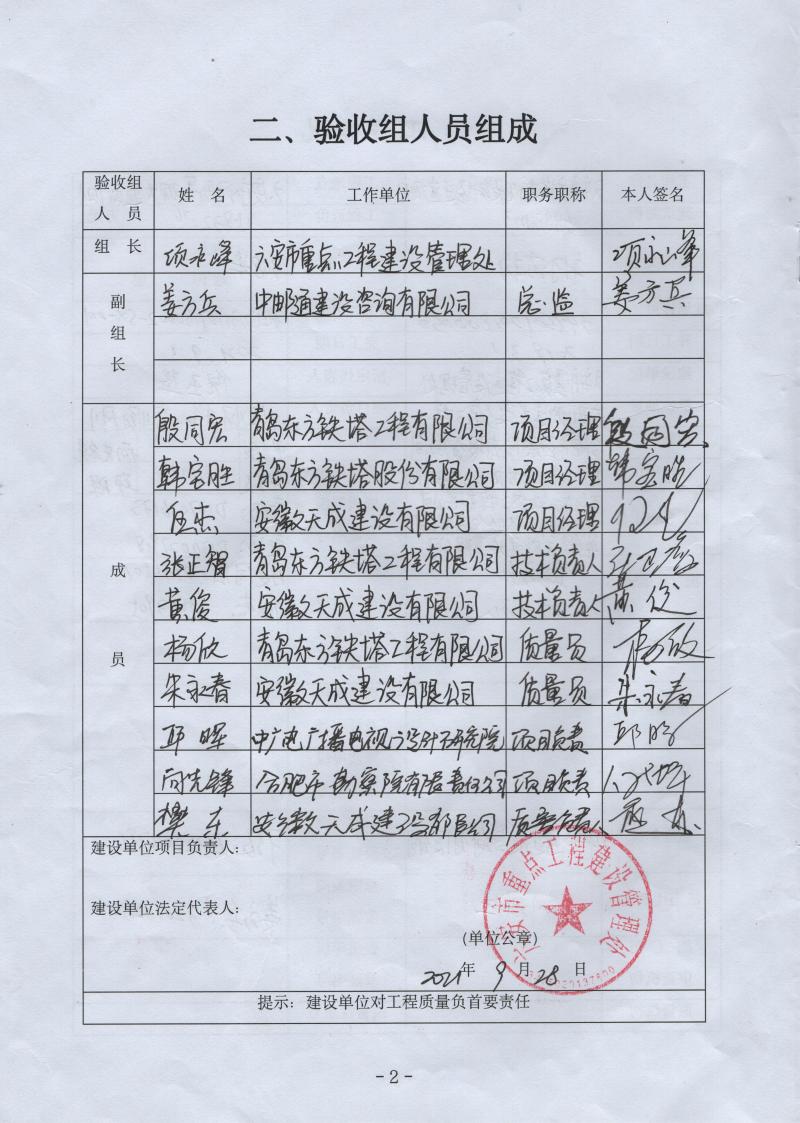 二、验收组人员组成
验收组人员 姓 名 工作单位 职务职称 本人签名
组 长 项永峰 六安市重点工程建设管理处 项永峰
副组长 姜方兵 中邮通建设咨询有限公司 总监 姜方兵
成员
殷同宏 青岛东方铁塔工程有限公司 项目经理 殷同宏
韩宝胜 青岛东方铁塔股份有限公司 项目经理
伍杰 安徽天成建设有限公司 项目经理
张正智 青岛东方铁塔工程有限公司 技术负责人
黄俊 安徽天成建设有限公司 技术负责人 黄俊
杨欣 青岛东方铁塔工程有限公司 质量员 杨欣
朱永春 安徽天成建设有限公司 质量员 朱永春
晖 中广电广播电视设计研究院 项目负责
向先锋 合肥市勘察院有限责任公司 项目负责
樊东 安徽天成建设有限公司 质量负责人
建设单位项目负责人：
建设单位法定代表人：
(单位公章)
2021年 9 月 28 日
六安市重点工程建设管理处
提示：建设单位对工程质量负首要责任
- 2 -